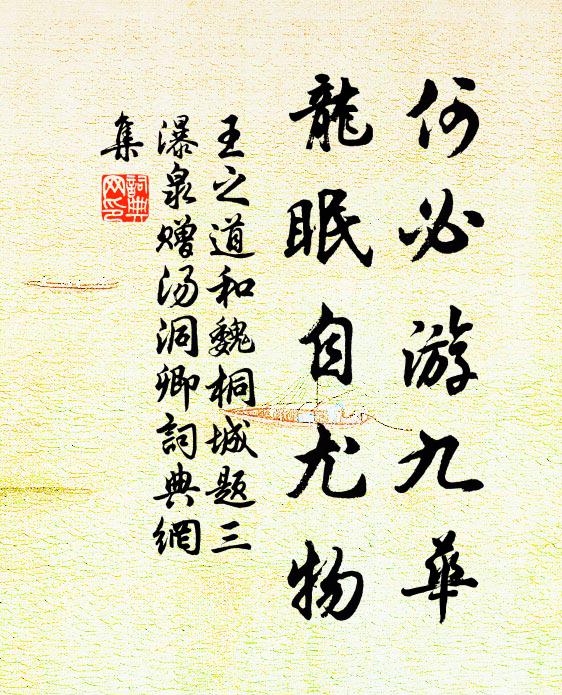 何必游九華
龍眠自尤物
王之道和魏桐城题三
瀑泉赠汤洞卿詞典網
集
詞典网印